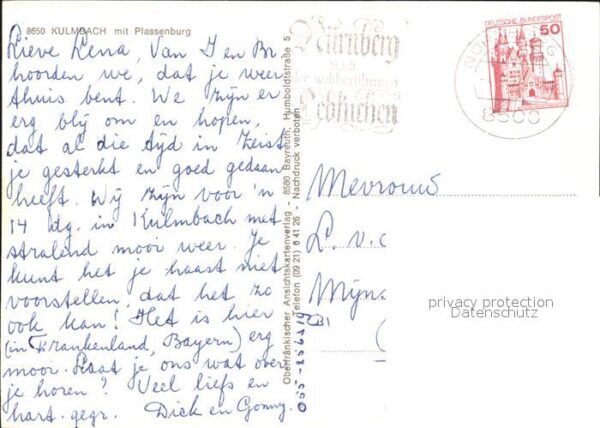 8650 KULMBACH mit Plassenburg
Lieve Lena, Van J en Br
hoorden we, dat je weer
thuis bent. We zijn er
erg blij om en hopen,
dat al die tijd in Zeist
je gesterkt en goed gedaan
heeft. Wij zijn voor 'n
14 dg. in Kulmbach met
stralend mooi weer. Je
kunt het je haast niet
voorstellen, dat het zo
ook kan! Het is hier
(in Frankenland, Bayern) erg
mooi. Laat je ons wat over
je horen? Veel liefs en
hart. gegr. Dick en Gonny.
Oberfränkischer Ansichtskartenverlag - 8580 Bayreuth, Humboldtstraße 5
Telefon (09 21) 6 41 26 - Nachdruck verboten
Nürnberg
Stadt
der weltberühmten
Lebkuchen
DEUTSCHE BUNDESPOST
50
8500
Mevrouw
L. v.
privacy protection
Datenschutz